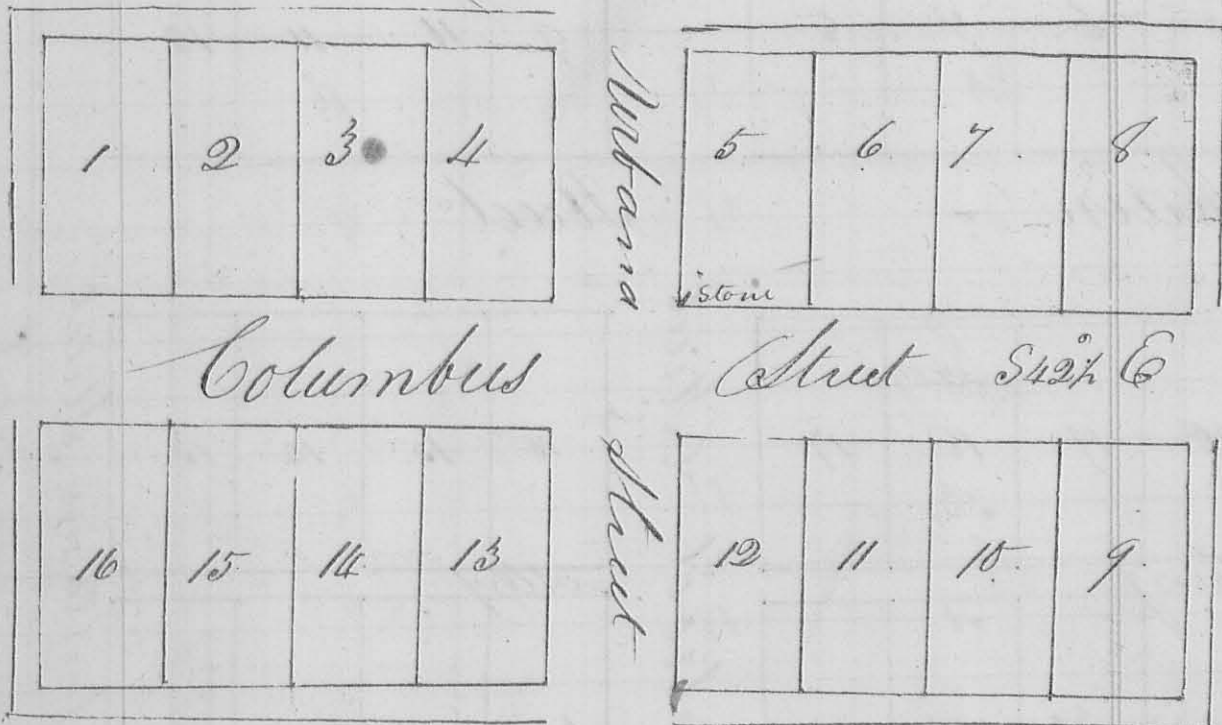 1 2 3 4
Urbana Street
5 6 7 8
Stone
Columbus Street S42½° E
16 15 14 13
12 11 10 9